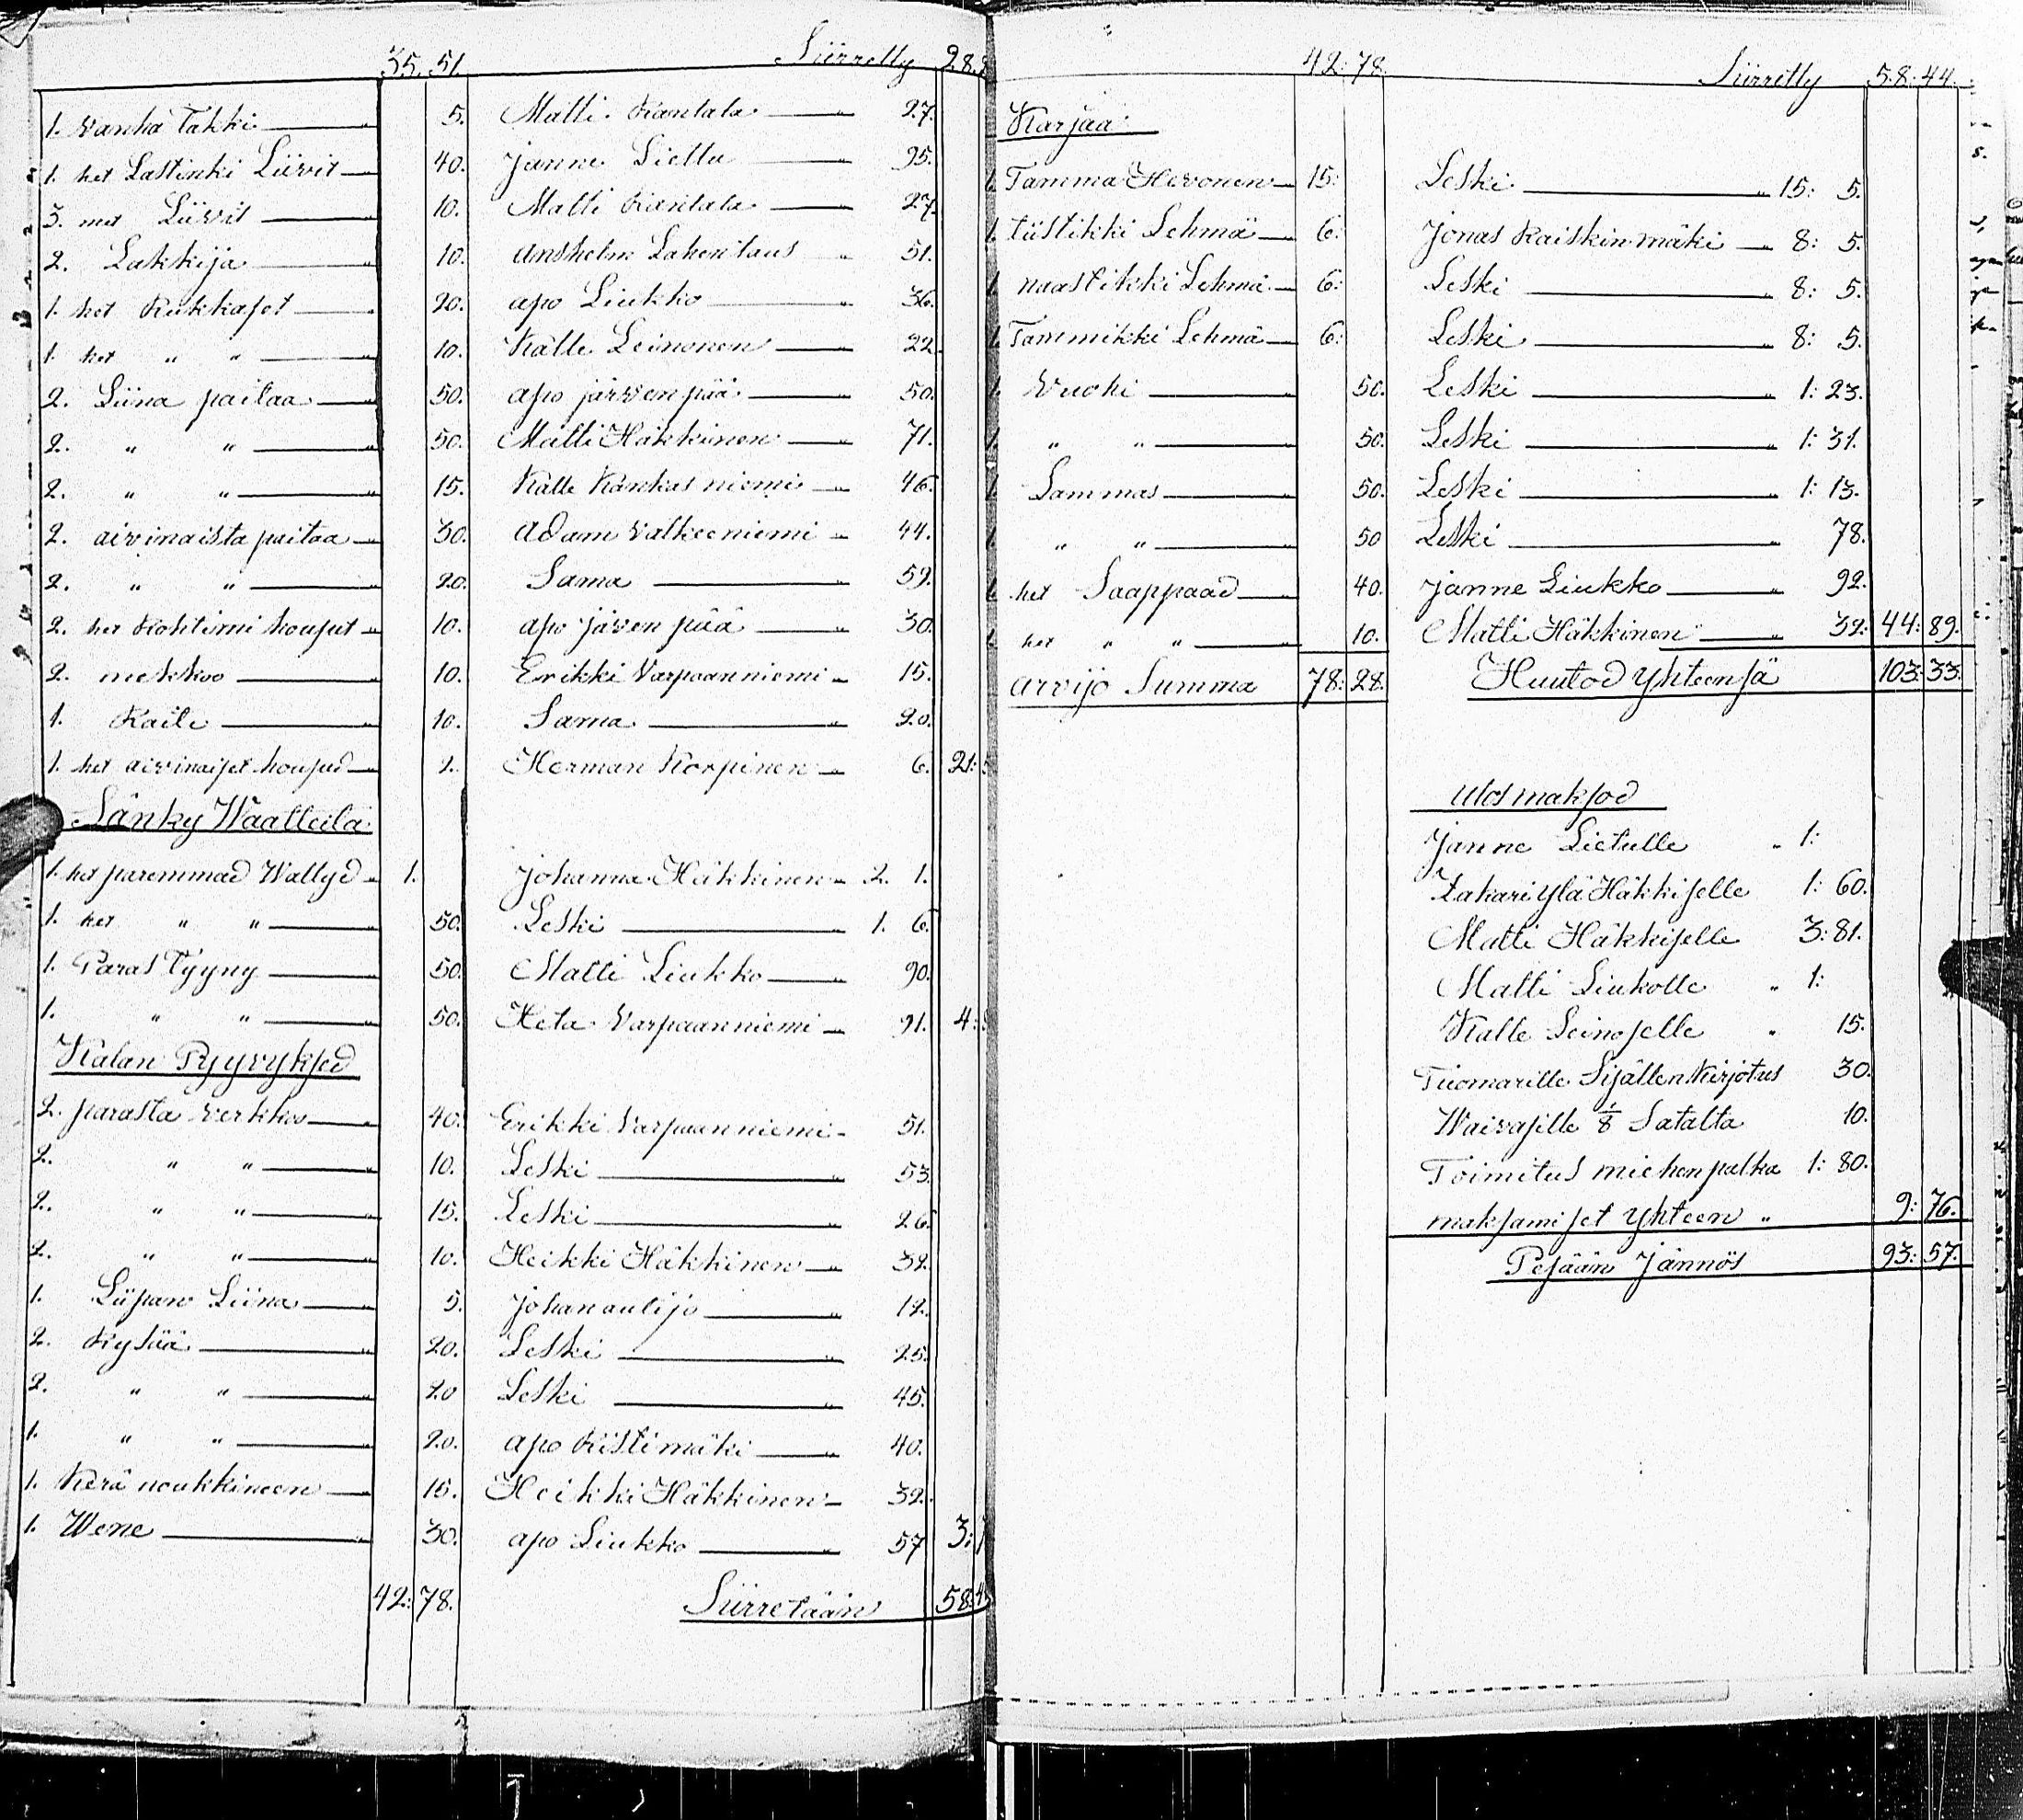 35. 51. Siirretty 28.
1. Vanha Takki " 5. Matti Kantala " 27.
1. het Lastinki Liivit " 40. Janne Liettu " 95.
3. met Liivit " 10. Matti Kantala " 27.
2. Lakkija " 10. Anshelm Lahentaus " 51.
1. het Rukkaset " 20. apo Liukko " 36.
1. het " " " 10. Kalle Leinonen " 22.
2. Liina paitaa " 50. apo järvenpää " 50.
2. " " " 50. Matti Häkkinen " 71.
2. " " " 15. Kalle Kankas niemi " 46.
2. aivinaista paitaa " 30. Adam Valkeeniemi " 44.
2. " " " 20. Sama " 59.
2. het Rohtimi housut " 10. apo järven pää " 30.
2. mekkoo " 10. Erikki Varpaanniemi " 15.
1. Raite " 10. Sama " 20.
1. het aivinaiset housud " 2. Herman Korpinen " 6. 21:
Sänky Waatteila
1. het paremmad Wallyd " 1. Johanna Häkkinen " 2. 1.
1. het " " " 50. Leski " 1. 6.
1. Paras Tyyny " 50. Matti Liukko " 90.
1. " " " 50. Heta Varpaanniemi " 91. 4:
Kalan Pyyvyksed
2. parasta verkko " 40. Erikki Varpaanniemi " 51.
2. " " " 10. Leski " 53.
2. " " " 15. Leski " 26.
2. " " " 10. Heikki Häkkinen " 32.
1. Liipan Liina " 5. Johan autijo " 12.
2. Rysää " 20. Leski " 25.
2. " " " 20 Leski " 45.
1. " " " 20. apo Ristimäki " 40.
1. Kerä noukkineen " 15. Heikki Häkkinen " 32.
1. Wene " 30. apo Liukko " 57 3:
42: 78. Siirretään 58:4
42: 78. Siirretty 58: 44.
Karjaa
1. Tamma Hevonen " 15: Leski " 15: 5.
1. tiistikki Lehmä " 6: Jonas Raiskinmäki " 8: 5.
1. naastikki Lehmä " 6: Leski " 8: 5.
1. Tammikki Lehmä " 6: Leski " 8: 5.
1. Vuohi " 50. Leski " 1: 23.
1. " " " 50. Leski " 1: 31.
1. Lammas " 50. Leski " 1: 13.
1. " " " 50 Leski " 78.
1. het Saappaad " 40. Janne Liukko " 92.
1. het " " " 10. Matti Häkkinen " 39: 44: 89.
arvijo Summa 78: 28. Huutod Yhteensä 103: 33.
Ulos maksod
Janne Lietulle " 1:
Zakari Ylä Häkkiselle 1: 60.
Matti Häkkiselle 3: 81.
Matti Liukolle " 1:
Kalle Leinoselle " 15.
Tuomarille Sisällenkirjotus 30.
Waivasille 1/8 Satalta 10.
Toimitus miehen palka 1: 80.
maksamiset Yhteen " 9: 76.
Pesään Jäännös 93: 57.